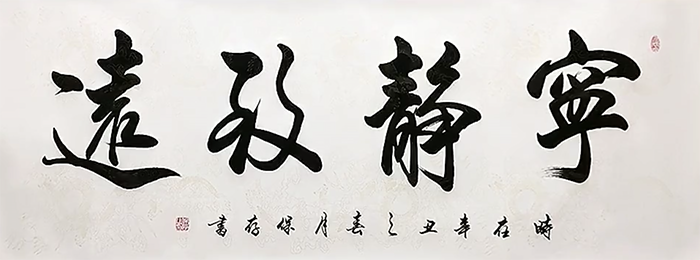 寧靜致遠
時在辛丑之春月保存書